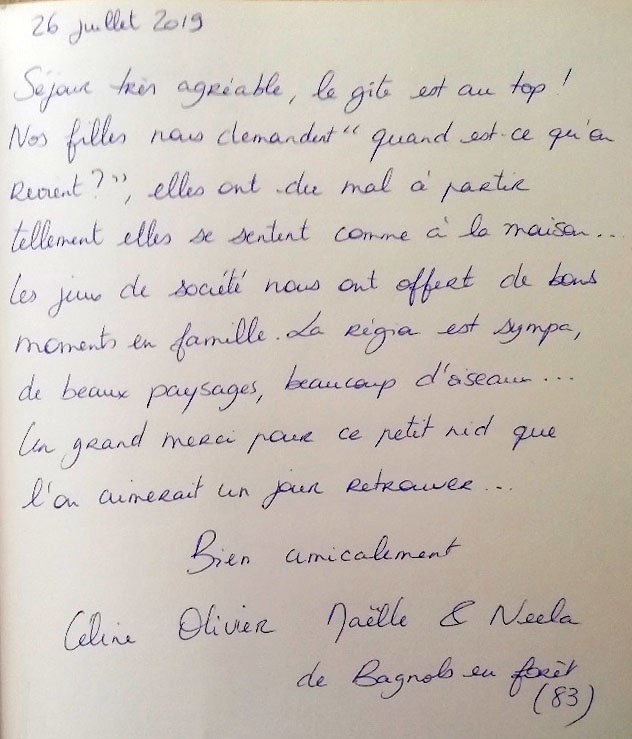 26 juillet 2019
Séjour très agréable, le gite est au top !
Nos filles nous demandent "quand est-ce qu'on
revient ?", elles ont du mal à partir
tellement elles se sentent comme à la maison...
Les jeux de société nous ont offert de bons
moments en famille. La région est sympa,
de beaux paysages, beaucoup d'oiseaux...
Un grand merci pour ce petit nid que
l'on aimerait un jour retrouver...
Bien amicalement
Céline Olivier Naëlle & Neela
de Bagnols en forêt
(83)